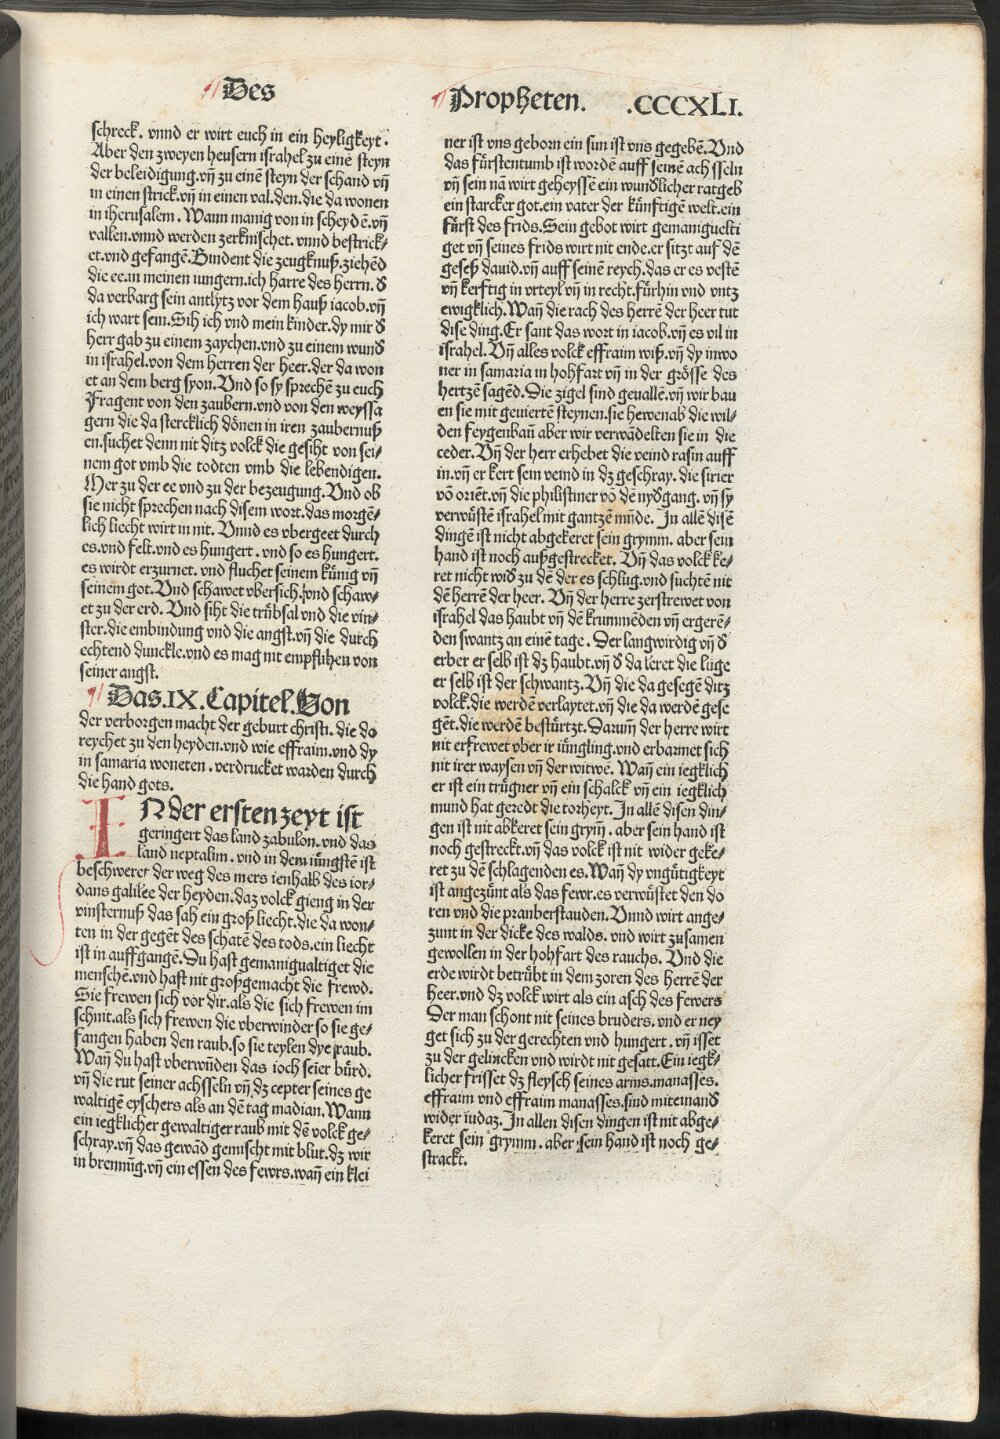 Des
Propheten. .CCCXLI.
schreck. vnnd er wirt euch in ein heyligkeyt.
Aber den zweyen heusern israhel zu einē steyn
der beleidigung.vn̄ zu einē steyn der schand vn̄
in einen strick.vn̄ in einen val.den.die da wonen
in iherusalem. Wann manig von in scheydē.vn̄
vallen.vnnd werden zerknischet. vnnd bestrick⸗
et.vnd gefangē.Bindent die zeugknuß.ziehēd
die ee.in meinen iungern.ich harre des herrn.d̕
da verbarg sein antlytz vor dem hauß iacob.vn̄
ich wart sein.Sih ich vnd mein kinder.dy mir d̕
herr gab zu einem zaychen.vnd zu einem wund̕
in israhel.von dem herren der heer.der da won
et an dem berg syon. Vnd so sy sprechē zu euch
Fragent von den zaubern.vnd von den weyssa
gern die da stercklich dönen in iren zaubernuß
en.suchet denn nit ditz volck die gesiht von sei⸗
nem got vmb die todten vmb die lebendigen.
Mer zu der ee vnd zu der bezeugung.Vnd ob
sie nicht sprechen nach disem wort.das morgē⸗
lich liecht wirt in nit. Vnnd es vbergeet durch
es.vnd felt.vnd es hungert. vnd so es hungert.
es wirdt erzurnet. vnd fluchet seinem künig vn̄
seinem got. Vnd schawet vbersich.vnd schaw⸗
et zu der erd. Vnd siht die trübsal vnd die vin⸗
ster.die embindung vnd die angst.vn̄ die durch
echtend dunckle.vnd es mag nit empflihen von
seiner angst.
Das.IX.Capitel.Von
der verborgen macht der geburt christi. die do
reychet zu den heyden.vnd wie effraim.vnd dy
in samaria woneten. verdrucket warden durch
die hand gots.
IN der ersten zeyt ist
geringert das land zabulon.vnd das
land neptalim. vnd in dem iüngstē ist
beschweret der weg des mers ienhalb des ior⸗
dans galilee der heyden.daz volck gieng in der
vinsternuß das sah ein groß liecht.die da won⸗
ten in der gegēt des schatē des tods.ein liecht
ist in auffgangē.Du hast gemanigualtiget die
menschē.vnd hast nit großgemacht die frewd.
Sie frewen sich vor dir.als die sich frewen im
schnit.als sich frewen die vberwinder so sie ge⸗
fangen haben den raub.so sie teylen dye raub.
Wan̄ du hast vberwūden das ioch seier bürd.
vn̄ die rut seiner achsseln vn̄ dz cepter seines ge
waltigē eyschers als an dē tag madian.Wann
ein iegklicher gewaltiger raub mit dē volck ge⸗
schray.vn̄ das gewād gemischt mit blut.dz wir
in brennūg.vn̄ ein essen des fewrs.wan̄ ein klei
ner ist vns geborn ein sun ist vns gegebē.Vnd
das fürstentumb ist wordē auff seinē ach sseln
vn̄ sein nā wirt geheyssē ein wund̕licher ratgeb
ein starcker got.ein vater der künftigē welt.ein
fürst des frids.Sein gebot wirt gemaniguelti
get vn̄ seines frids wirt nit ende.er sitzt auf dē
geseß dauid.vn̄ auff seinē reych.das er es vestē
vn̄ kerftig in vrteyl vn̄ in recht.fürhin vnd vntz
ewigklich.Wan̄ die rach des herrē der heer tut
dise ding.Er sant das wort in iacob.vn̄ es vil in
israhel.Vn̄ alles volck effraim wiß.vn̄ dy inwo
ner in samaria in hohfart vn̄ in der grösse des
hertzē sagēd.Die zigel sind geuallē.vn̄ wir bau
en sie mit geuiertē steynen.sie hewenab die wil⸗
den feygenbau̅ aber wir verwādelten sie in die
ceder. Vn̄ der herr erhebet die veind rasin auff
in.vn̄ er kert sein veind in dz geschray. die sirier
vō oriēt.vn̄ die philistiner vō dē nyd̕gang. vn̄ sy
verwüstē israhel mit gantzē mūde. In allē disē
dingē ist nicht abgekeret sein grymm. aber sein
hand ist noch außgestrecket. Vn̄ das volck ke⸗
ret nicht wid̕ zu dē der es schlug.vnd suchtē nit
dē herrē der heer. Vn̄ der herre zerstrewet von
israhel das haubt vn̄ dē krummēden vn̄ ergerē⸗
den swantz an einē tage. Der langwirdig vn̄ d̕
erber er selb ist dz haubt.vn̄ d̕ da leret die luge
er selb ist der schwantz.Vn̄ die da gesegē ditz
volck.die werdē verlaytet.vn̄ die da werdē gese
gēt.die werdē bestürtzt.Darum̄ der herre wirt
nit erfrewet vber ir iüngling.vnd erbarmet sich
nit irer waysen vn̄ der witwē. Wan̄ ein iegklich
er ist ein trügner vn̄ ein schalck vn̄ ein iegklich
mund hat geredt die torheyt.In allē disen din⸗
gen ist nit abkeret sein grym̄. aber sein hand ist
noch gestreckt.vn̄ das volck ist nit wider geke⸗
ret zu dē schlagenden es.Wan̄ dy vngütigkeyt
ist angezünt als das fewr.es verwüstet den do
ren vnd die pranberstauden. Vnnd wirt ange⸗
zunt in der dicke des walds. vnd wirt zusamen
gewollen in der hohfart des rauchs. Vnd die
erde wirdt betrübt in dem zoren des herrē der
heer.vnd dz volck wirt als ein asch des fewers
Der man schont nit seines bruders.vnd er ney
get sich zu der gerechten vnd hungert. vn̄ isset
zu der gelincken vnd wirdt nit gesatt.Ein iegk⸗
licher frisset dz fleysch seines arms.manasses.
effraim vnd effraim manasses.sind miteinand̕
wider iudaz. In allen disen dingen ist nit abge⸗
keret sein grymm. aber sein hand ist noch ge⸗
strackt.